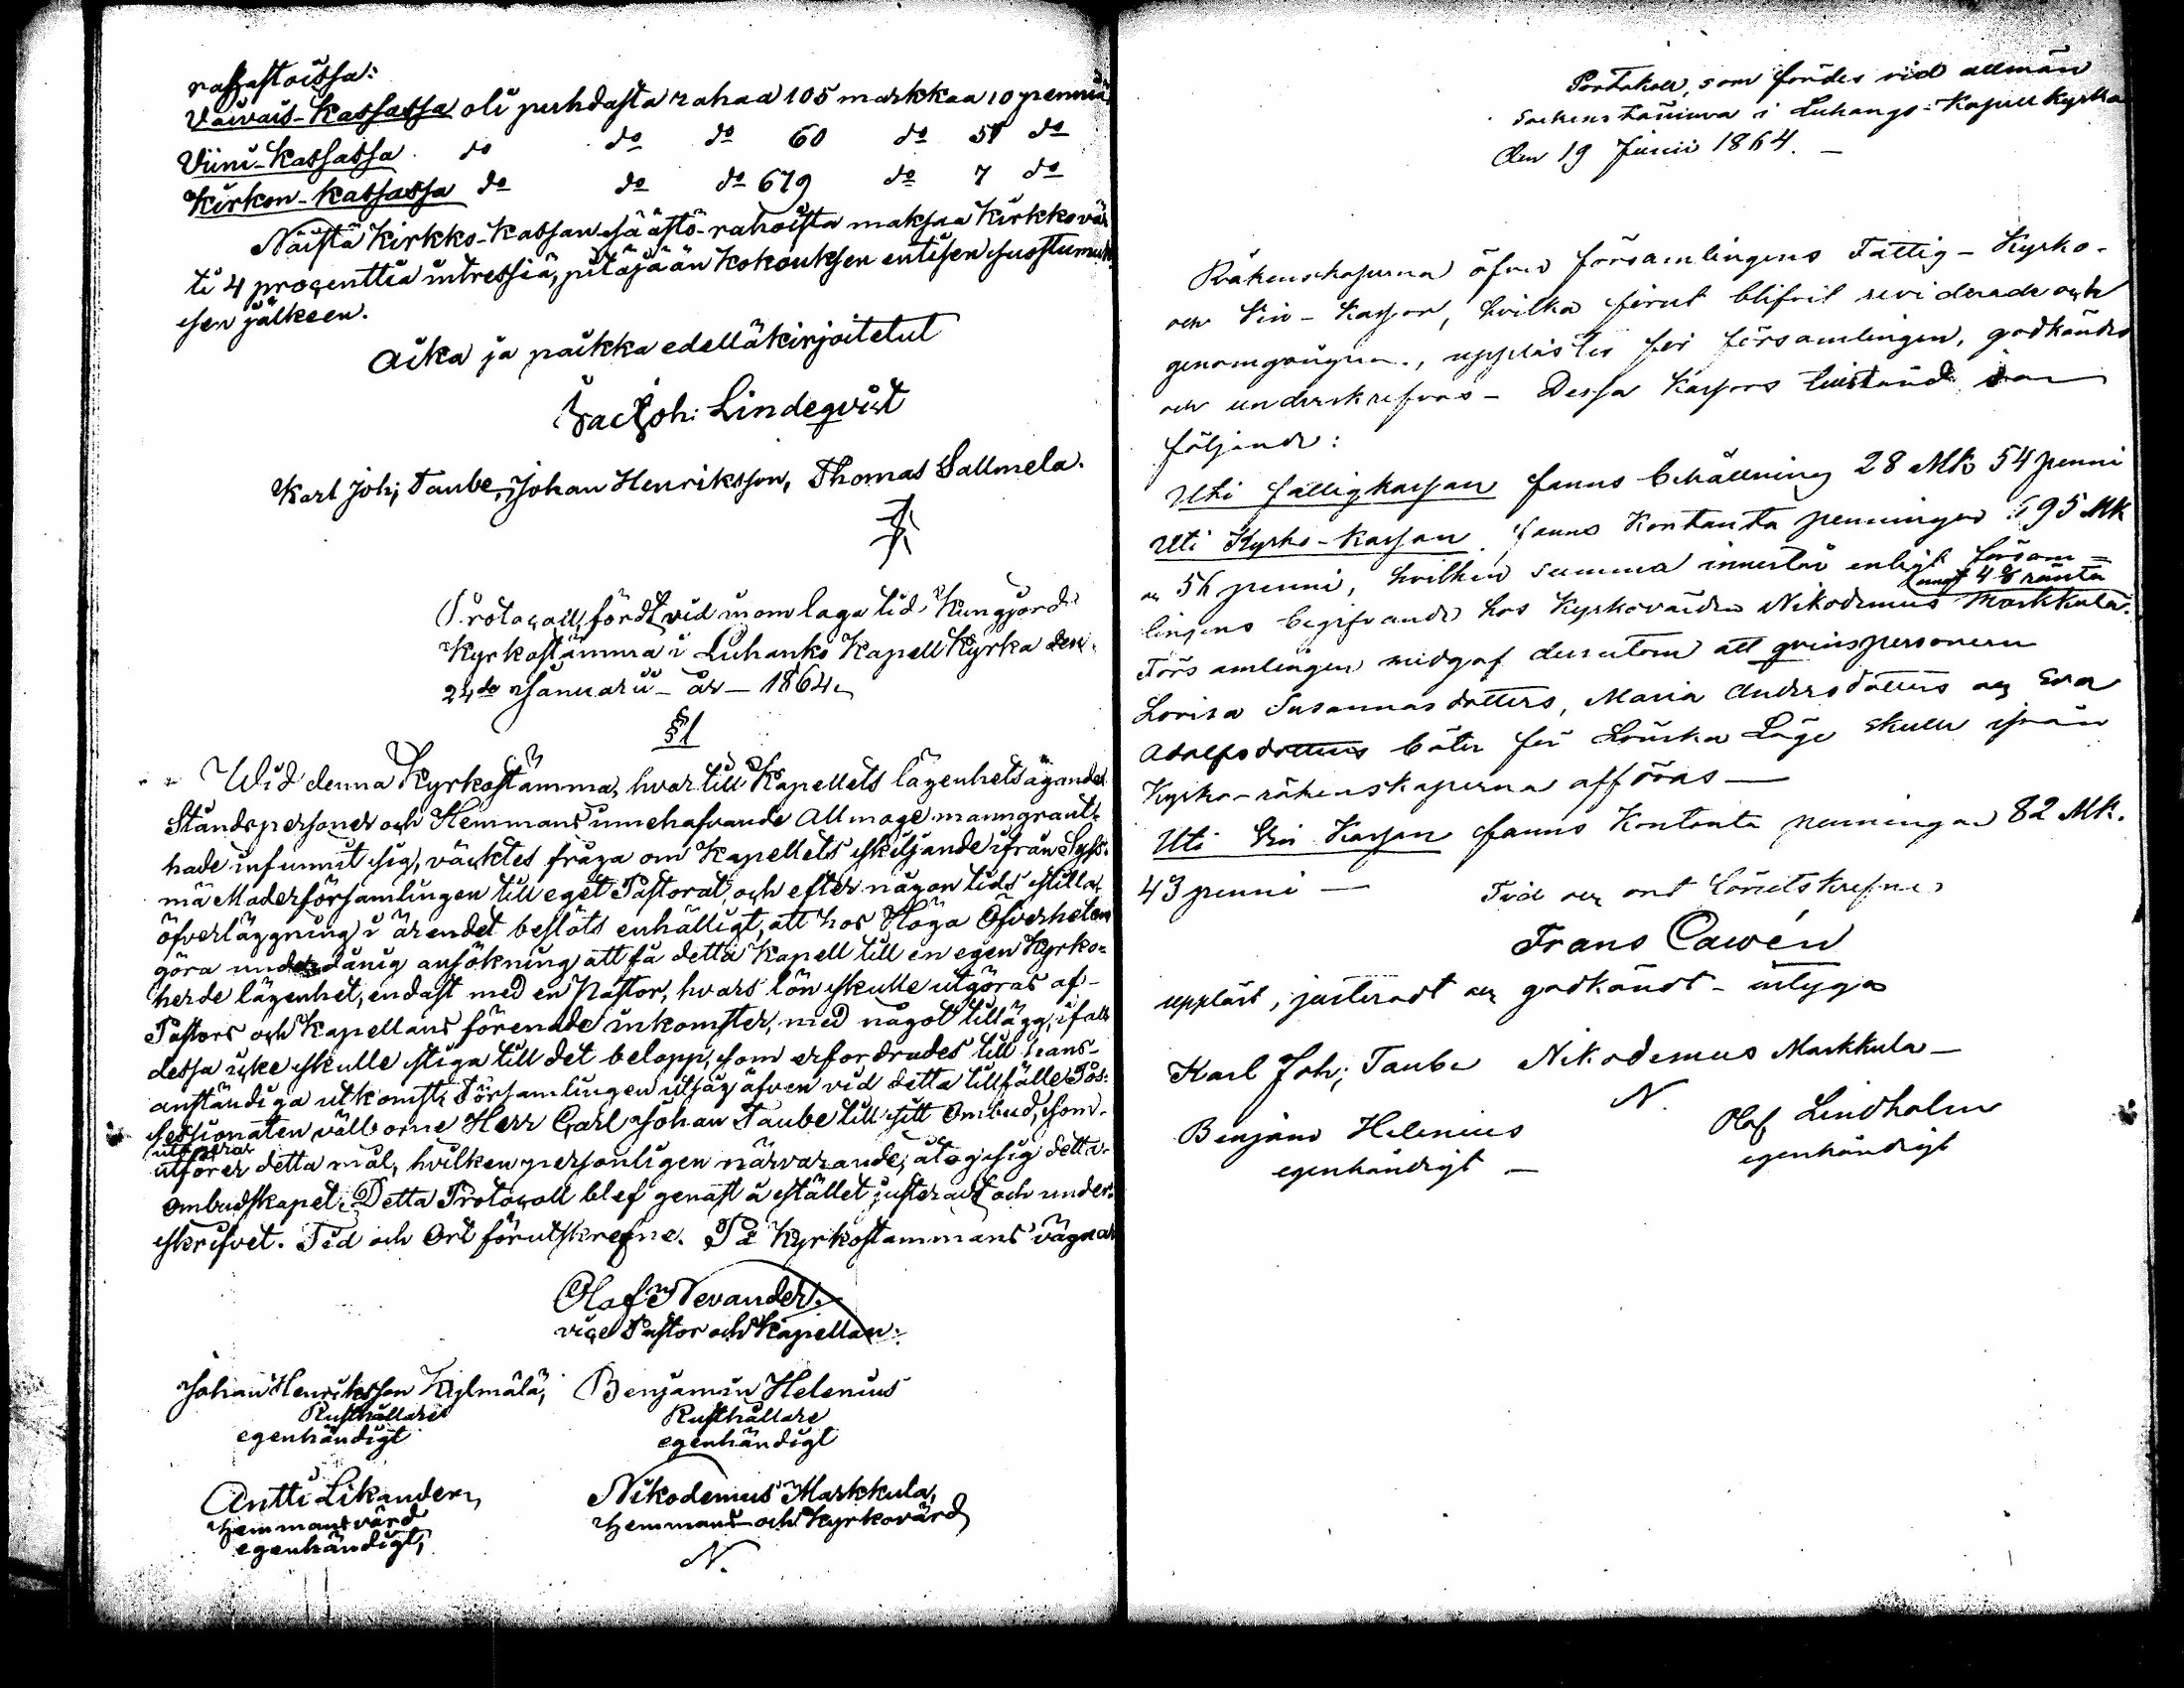 rahastoissa:
Vaivais-Kassassa oli puhdasta rahaa 105 markkaa 10 penniä
Viini-Kassassa do do do 60 do 51 do
Kirkon-Kassassa do do do 679 do 7 do
Näistä Kirkko-Kassan säästö-rahoista maksaa Kirkkovär
ti 4 procenttia intressiä, pitäjään Kokouksen entisen suostumuk
sen jälkeen.
Aika ja paikka edelläkirjoitetut
Isac Joh: Lindeqvist
Karl Joh; Taube, Johan Henriksson, Thomas Sallmela.
Protocoll, fördt vid inom laga tid Kungjord
Kyrkostämma i Luhanko Kapell Kyrka den
24de Januarii – år – 1864.
§1
Wid denna Kyrkostämma, hvartill Kapellets lägenhetsägande
Ståndspersoner och Hemmans innehafvande Allmoge manngrant
hade infunnit sig, väcktes fråga om Kapellets skiljande ifrån Sys=
mä Moderförsamlingen till eget Pastorat, och efter någon tids stilla
öfverläggning i ärendet beslöts enhälligt, att hos Höga Öfverheten
göra underdånig ansökning att få detta Kapell till en egen Kyrko=
herde lägenhet, endast med en Pastor, hvars lön skulle utgöras af
Pastors och Kapellans förenade inkomster, med något tillägg, ifall
dessa icke skulle stiga till det belopp, som erfordrades till hans
anständiga utkomst. Församlingen utsåg äfven vid detta tillfälle Pos=
sessionaten välborne Herr Carl Johan Taube till sitt Ombud, som
utförer detta mål, hvilken personligen närvarande, åtog sig detta
Ombudskapet. Detta Protocoll blef genast å stället justeradt och under=
skrifvet. Tid och Ort förutskrefne. På Kyrkostämmans vägnar
Olaf Nevander.
vice Pastor och Kapellan.
Johan Henriksson Kylmälä, Benjamin Helenius
Rusthållare Rusthållare
egenhändigt egenhändigt
Antti Likander, Nikodemus Markkula,
Hemmansvärd Hemmans och Kyrkovärd
egenhändigt, N.
Protokoll, som fördes vid allmän
Sockenstämma i Luhango Kapell Kyrka
den 19 Junii 1864. –
Räkenskaperna öfver församlingens Fattig – Kyrko-
och Vin – Kassor, hvilka förut blifvit reviderade och
genomgångna, upplästes för församlingen, godkändes
och underskrefvos – Dessa Kassors tillstånd var
följande:
Uti fattigkassan fanns behållning 28 Mk 54 penni
Uti Kyrko-kassan fanns Kontanta penningar 695 Mk
56 penni, hvilken summa innestår enligt försam=
emot 4 % ränta
lingens begifvande hos Kyrkovärden Nikodemus Markkula.
Församlingen medgaf dessutom att qvinspersonern
Lovisa Susannasdotters, Maria Andersdotters och Eva
Adolfsdotters böter för Lönska Läge skulle ifrån
Kyrko-räkenskaperna afföras –
Uti Vin Kassan fanns Kontanta penningar 82 Mk.
43 penni – Tid och ort förutskrefne
Frans Cawén
uppläst, justeradt och godkändt – intyga
Karl Joh; Taube Nikodemus Markkula –
N.
Benjam Helenius Olof Lindholm
egenhändigt – egenhändigt